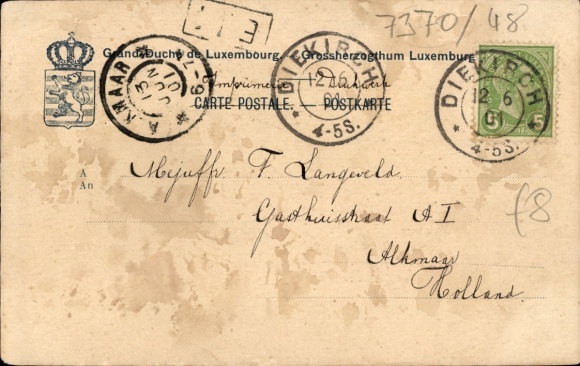 7370/48
Grand-Duché de Luxembourg. Grossherzogthum Luxemburg
Imprimerie Drucksache
CARTE POSTALE. — POSTKARTE
ALKMAAR
13 JUN 01
DIEKIRCH
12 6
01
4-5S.
DIEKIRCH
12 6
01
4-5S.
5 5
A
An
Mejuffr. F. Langeveld.
Gasthuisstraat A I
Alkmaar
Holland.
f8